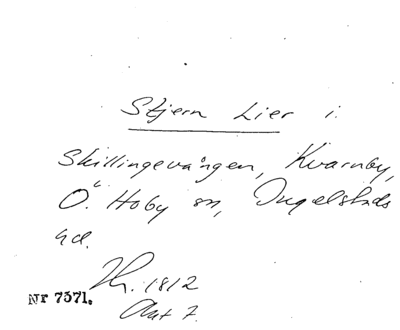 Stjern Lier i
Skillingevången, Kvarnby,
Ö. Hoby sn, Ingelstads
hd.
Akt 7.
Nr 7371.